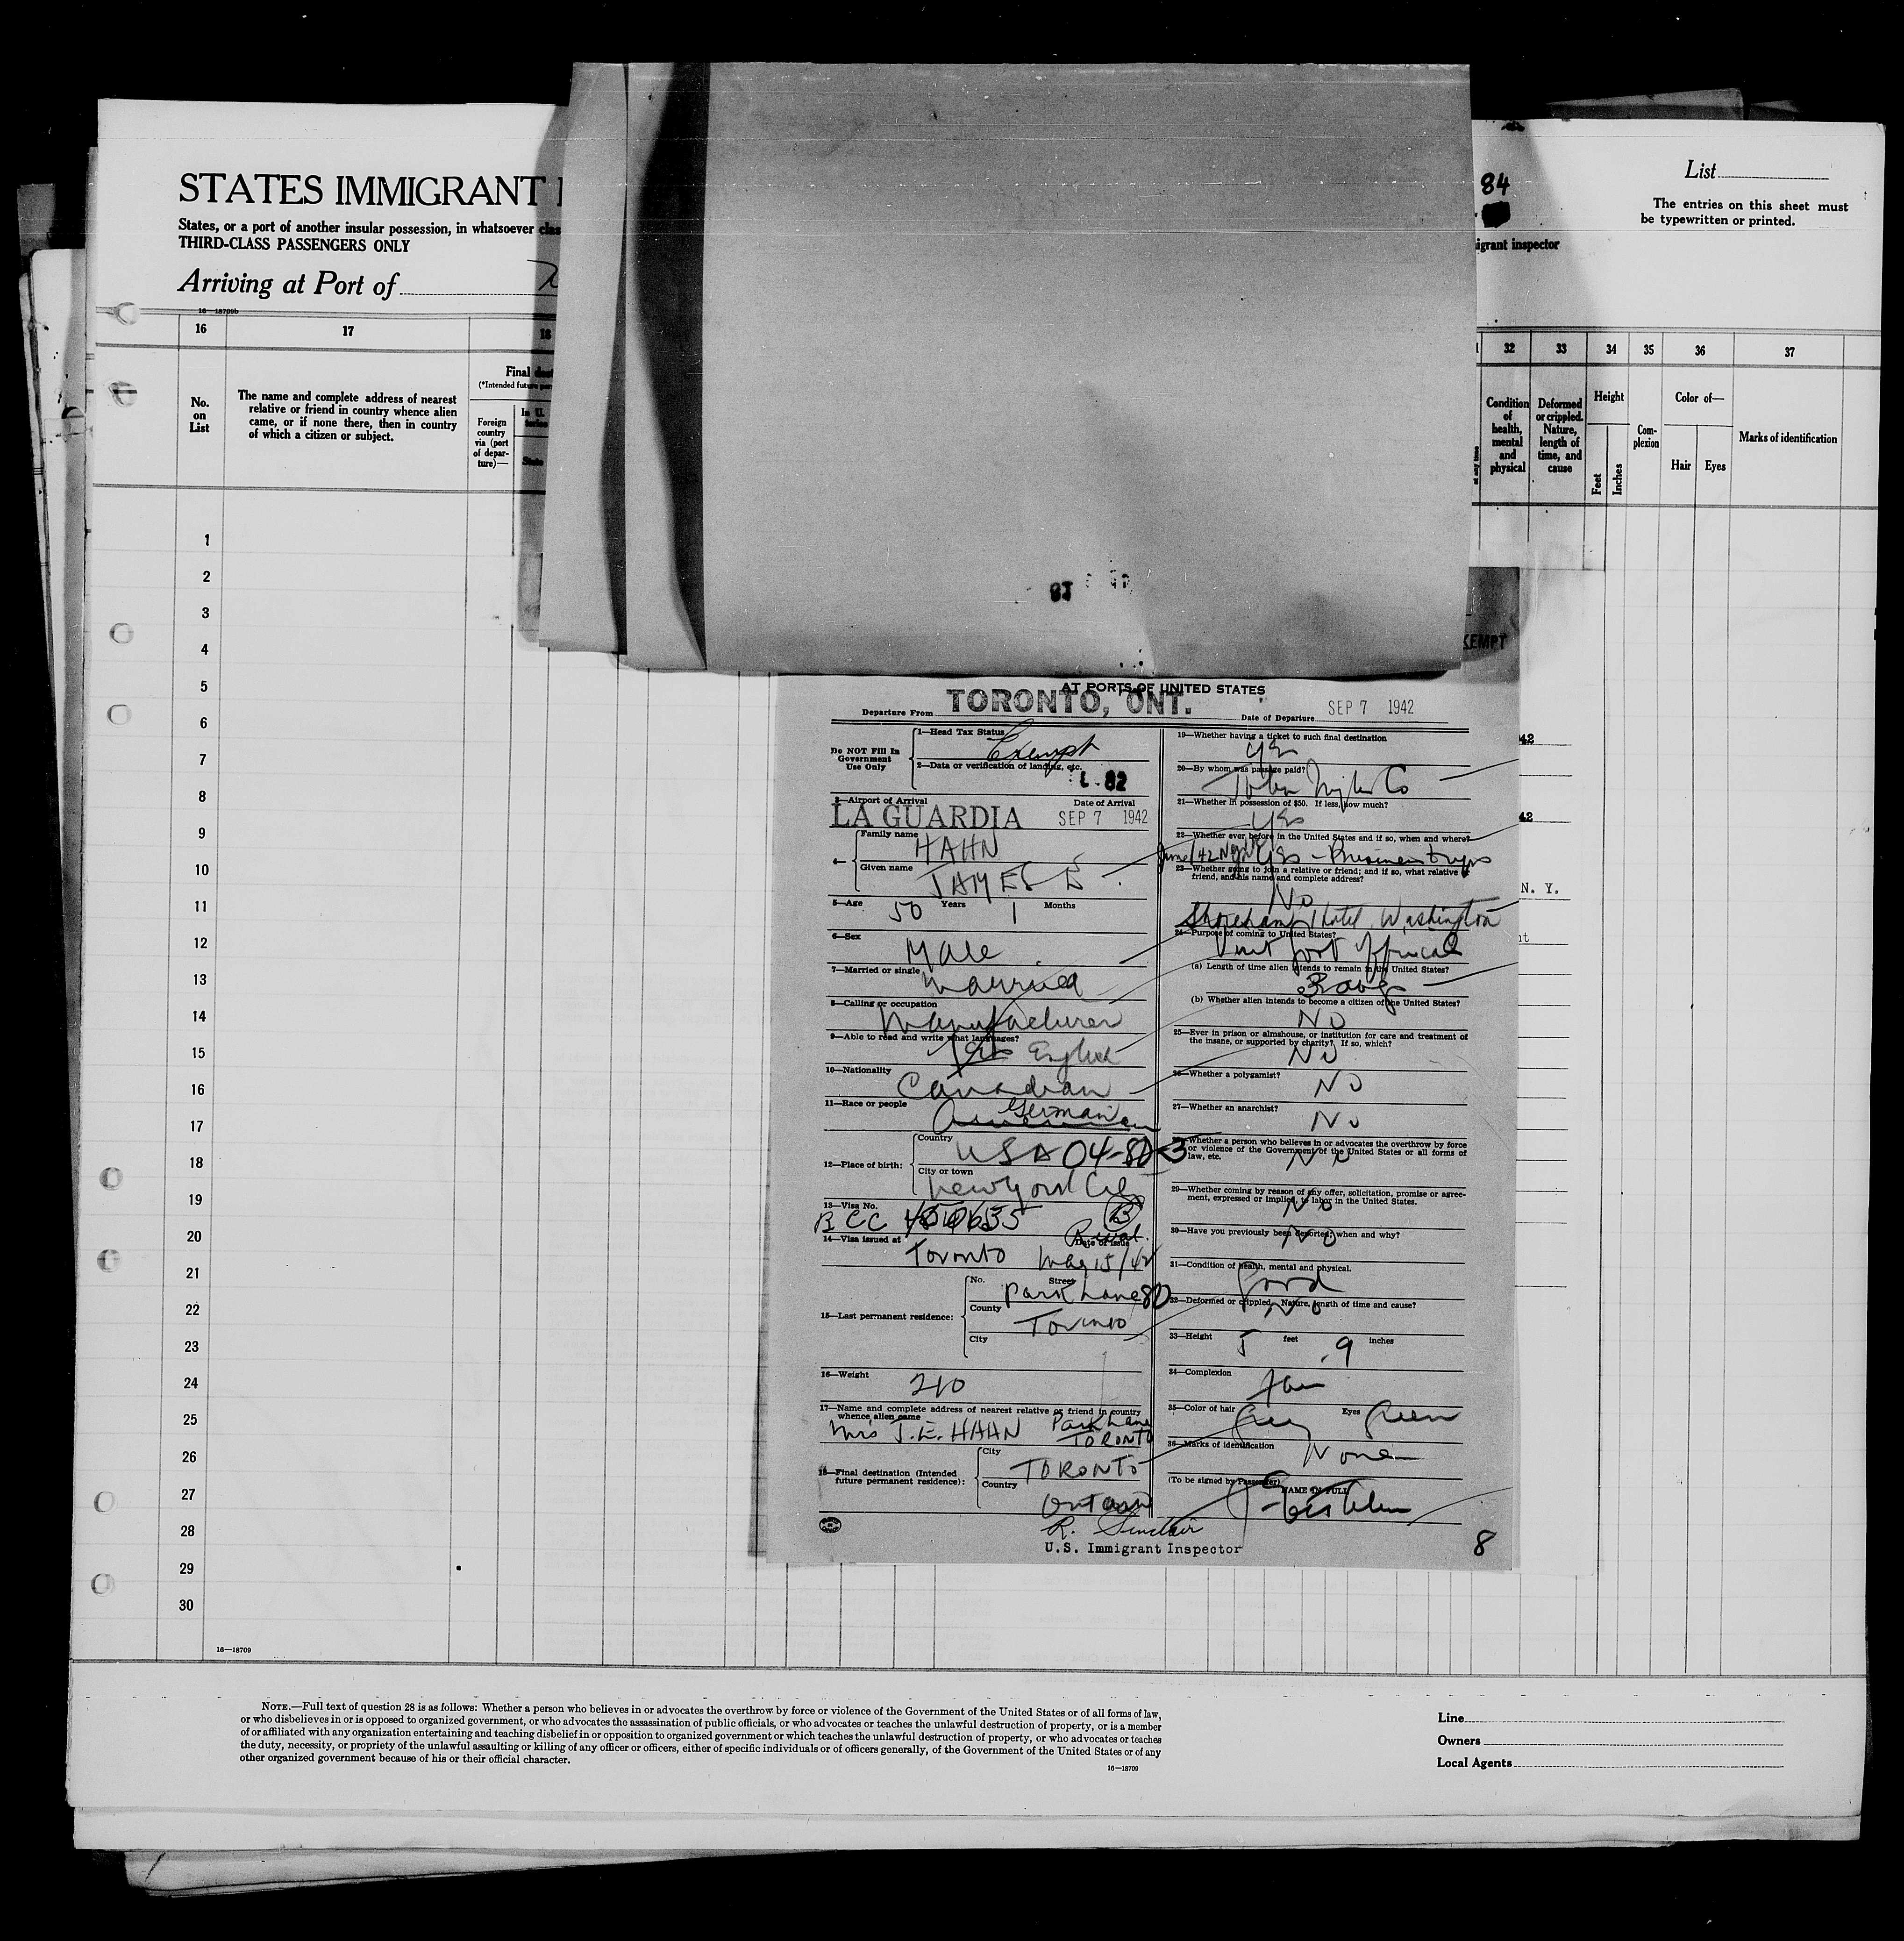 STATES IMMIGRANT
States, or a port of another insular possession, in whatsoever clas
THIRD-CLASS PASSENGERS ONLY
Arriving at Port of
84
igrant inspector
List
The entries on this sheet must
be typewritten or printed.
16—18709b
16 17 18 32 33 34 35 36 37
No.
on
List
The name and complete address of nearest
relative or friend in country whence alien
came, or if none there, then in country
of which a citizen or subject.
Final dest
(*Intended future per
Foreign
country
via (port
of depar-
ture)—
In U.
State
Condition
of
health,
mental
and
physical
Deformed
or crippled.
Nature,
length of
time, and
cause
Height
Feet
Inches
Com-
plexion
Color of—
Hair Eyes
Marks of identification
1
2
3
4
5
6
7
8
9
10
11
12
13
14
15
16
17
18
19
20
21
22
23
24
25
26
27
28
29
30
16—18709
XEMPT
42
42
N. Y.
nt
AT PORTS OF UNITED STATES
Departure From TORONTO, ONT. Date of Departure SEP 7 1942
Do NOT Fill In
Government
Use Only
1—Head Tax Status
Exempt
2—Data or verification of landing, etc.
L 82
3—Airport of Arrival Date of Arrival
LA GUARDIA SEP 7 1942
4— Family name HAHN
Given name JAMES E
5—Age 50 Years 1 Months
6—Sex Male
7—Married or single Married
8—Calling or occupation
Manufacturer
9—Able to read and write what languages?
Yes English
10—Nationality
Canadian
11—Race or people German
12—Place of birth: Country USA 04-80-3
City or town
New York City
13—Visa No.
BCC 450655 B
14—Visa issued at Toronto Date of Issue May 15/42
15—Last permanent residence:
No. Street Park Lane 80
County Toronto
City
16—Weight 210
17—Name and complete address of nearest relative or friend in country
whence alien came
Mrs J.E. HAHN Park Lane
TORONTO
18—Final destination (Intended
future permanent residence):
City TORONTO
Country Ontario
19—Whether having a ticket to such final destination
Yes
20—By whom was passage paid?
John Inglis Co
21—Whether in possession of $50. If less, how much?
Yes
22—Whether ever before in the United States and if so, when and where?
June/42 Yes – Business trips
23—Whether going to join a relative or friend; and if so, what relative or
friend, and his name and complete address?
No
Shoreham Hotel, Washington
24—Purpose of coming to United States?
Visit Govt Officials
(a) Length of time alien intends to remain in the United States?
3 days
(b) Whether alien intends to become a citizen of the United States?
No
25—Ever in prison or almshouse, or institution for care and treatment of
the insane, or supported by charity? If so, which?
No
26—Whether a polygamist? No
27—Whether an anarchist? No
28—Whether a person who believes in or advocates the overthrow by force
or violence of the Government of the United States or all forms of
law, etc. No
29—Whether coming by reason of any offer, solicitation, promise or agree-
ment, expressed or implied, to labor in the United States.
No
30—Have you previously been deported; when and why?
No
31—Condition of health, mental and physical.
Good
32—Deformed or crippled. Nature, length of time and cause?
No
33—Height 5 feet 9 inches
34—Complexion
35—Color of hair Grey Eyes Green
36—Marks of identification None
(To be signed by Passenger)
NAME IN FULL
R. Sinclair
U.S. Immigrant Inspector
8
NOTE.—Full text of question 28 is as follows: Whether a person who believes in or advocates the overthrow by force or violence of the Government of the United States or of all forms of law,
or who disbelieves in or is opposed to organized government, or who advocates the assassination of public officials, or who advocates or teaches the unlawful destruction of property, or is a member
of or affiliated with any organization entertaining and teaching disbelief in or opposition to organized government or which teaches the unlawful destruction of property, or who advocates or teaches
the duty, necessity, or propriety of the unlawful assaulting or killing of any officer or officers, either of specific individuals or of officers generally, of the Government of the United States or of any
other organized government because of his or their official character.
16—18709
Line
Owners
Local Agents